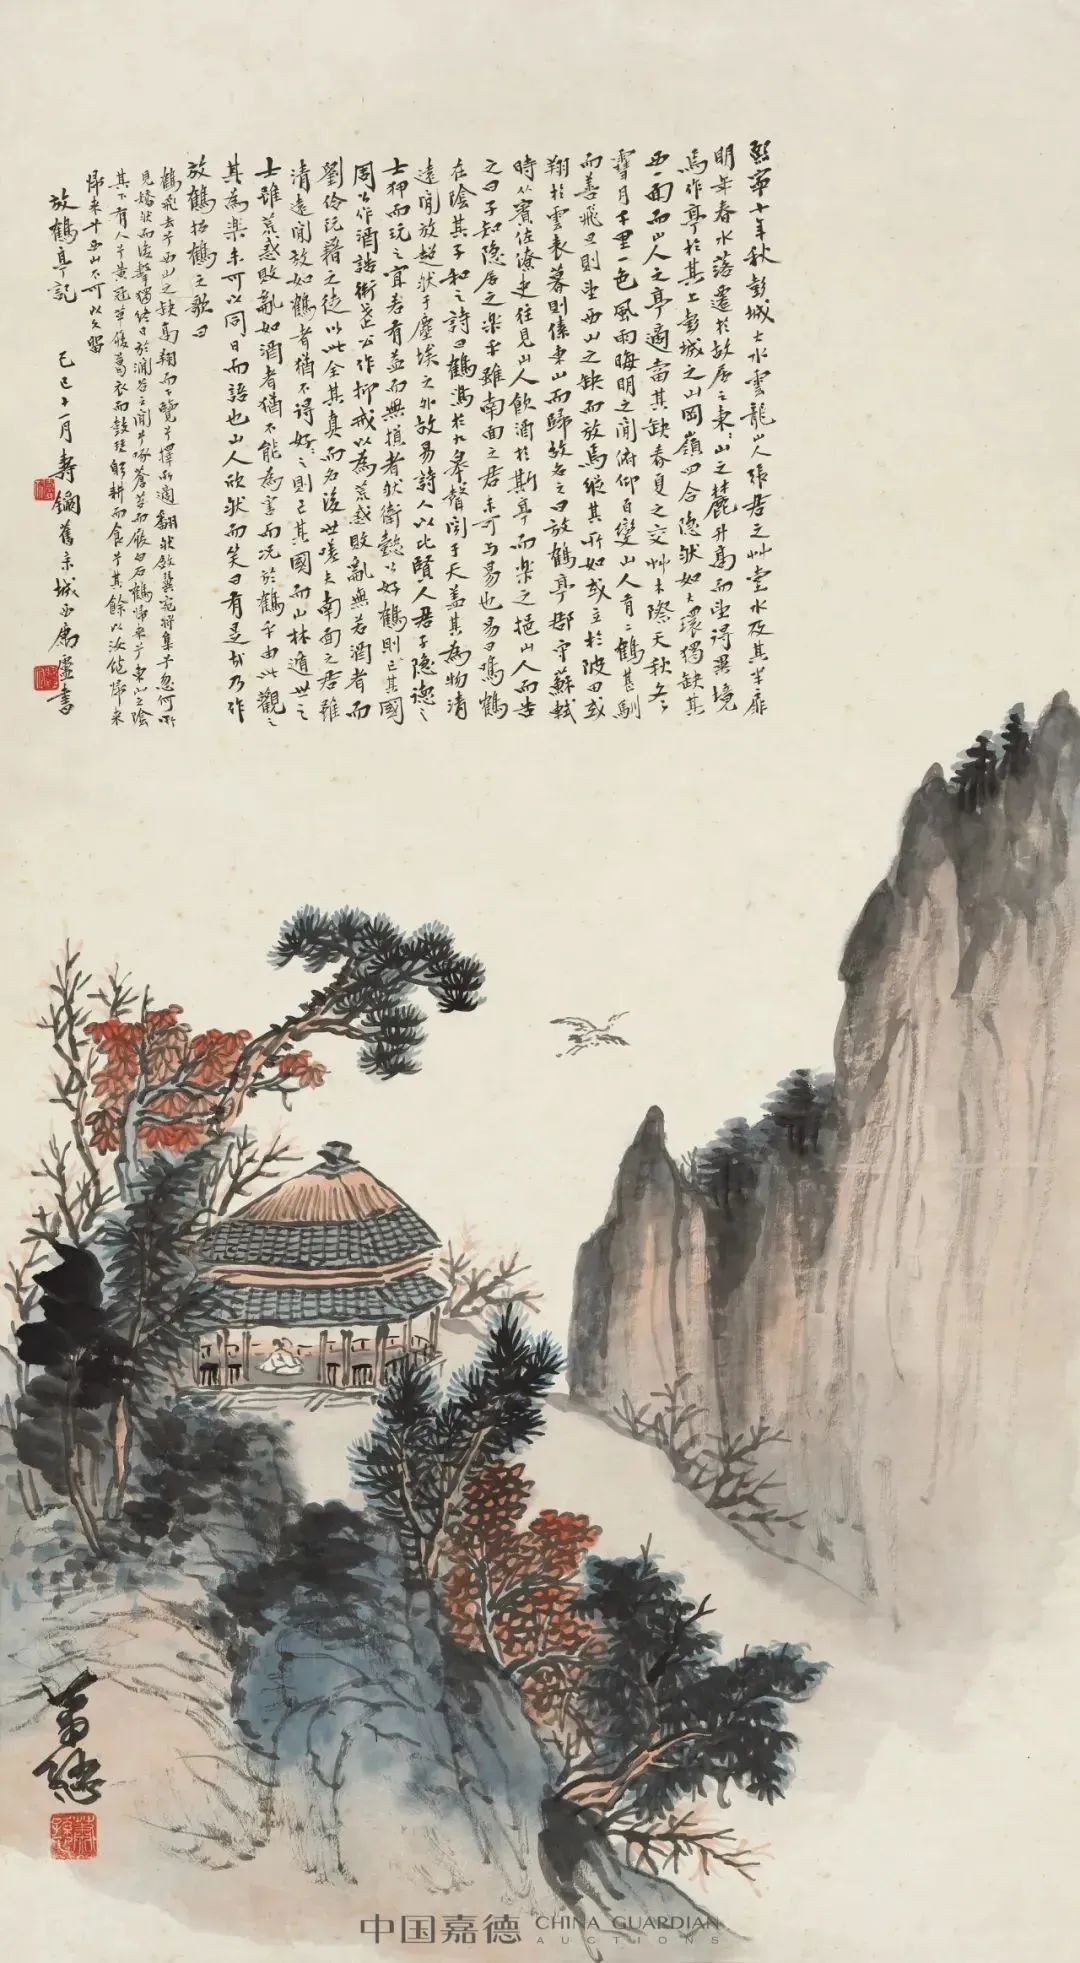 熙寧十年秋彭城大水雲龍山人張君之艸堂水及其半扉
明年春水落遷於故居之東々山之麓升高而望得異境
焉作亭於其上彭城之山岡嶺四合隱然如大環獨缺其
西一面而山人之亭適當其缺春夏之交艸木際天秋冬
雪月千里一色風雨晦明之間俯仰百變山人有二鶴甚馴
而善飛旦則望西山之缺而放焉縱其所如或立於陂田或
翔於雲表暮則傃東山而歸故名之曰放鶴亭郡守蘇軾
時從賓佐僚吏往見山人飲酒於斯亭而樂之挹山人而告
之曰子知隱居之樂乎雖南面之君未可与易也易曰鳴鶴
在陰其子和之詩曰鶴鳴於九皋聲聞于天蓋其為物清
遠閒放超然于塵埃之外故易詩人以比賢人君子隱德之
士狎而玩之宜若有益而無損者然衛懿公好鶴則亡其國
周公作酒誥衛武公作抑戒以為荒惑敗亂無若酒者而
劉伶阮籍之徒以此全其真而名後世嗟夫南面之君雖
清遠閒放如鶴者猶不得好々之則亡其國而山林遁世之
士雖荒惑敗亂如酒者猶不能為害而況於鶴乎由此觀之
其為樂未可以同日而語也山人欣然而笑曰有是哉乃作
放鶴招鶴之歌曰
鶴飛去兮西山之缺高翔而下覽兮擇所適翻然斂翼宛將集兮忽何所
見矯然而復擊獨終日於澗谷之間兮啄蒼苔而履白石鶴歸來兮東山之陰
其下有人兮黃冠草履葛衣而鼓琴躬耕而食兮其餘以汝飽歸來
歸來兮西山不可以久留
放鶴亭記 己巳十一月壽鑈舊京城西書
蕭愻
中国嘉德 CHINA GUARDIAN
AUCTIONS